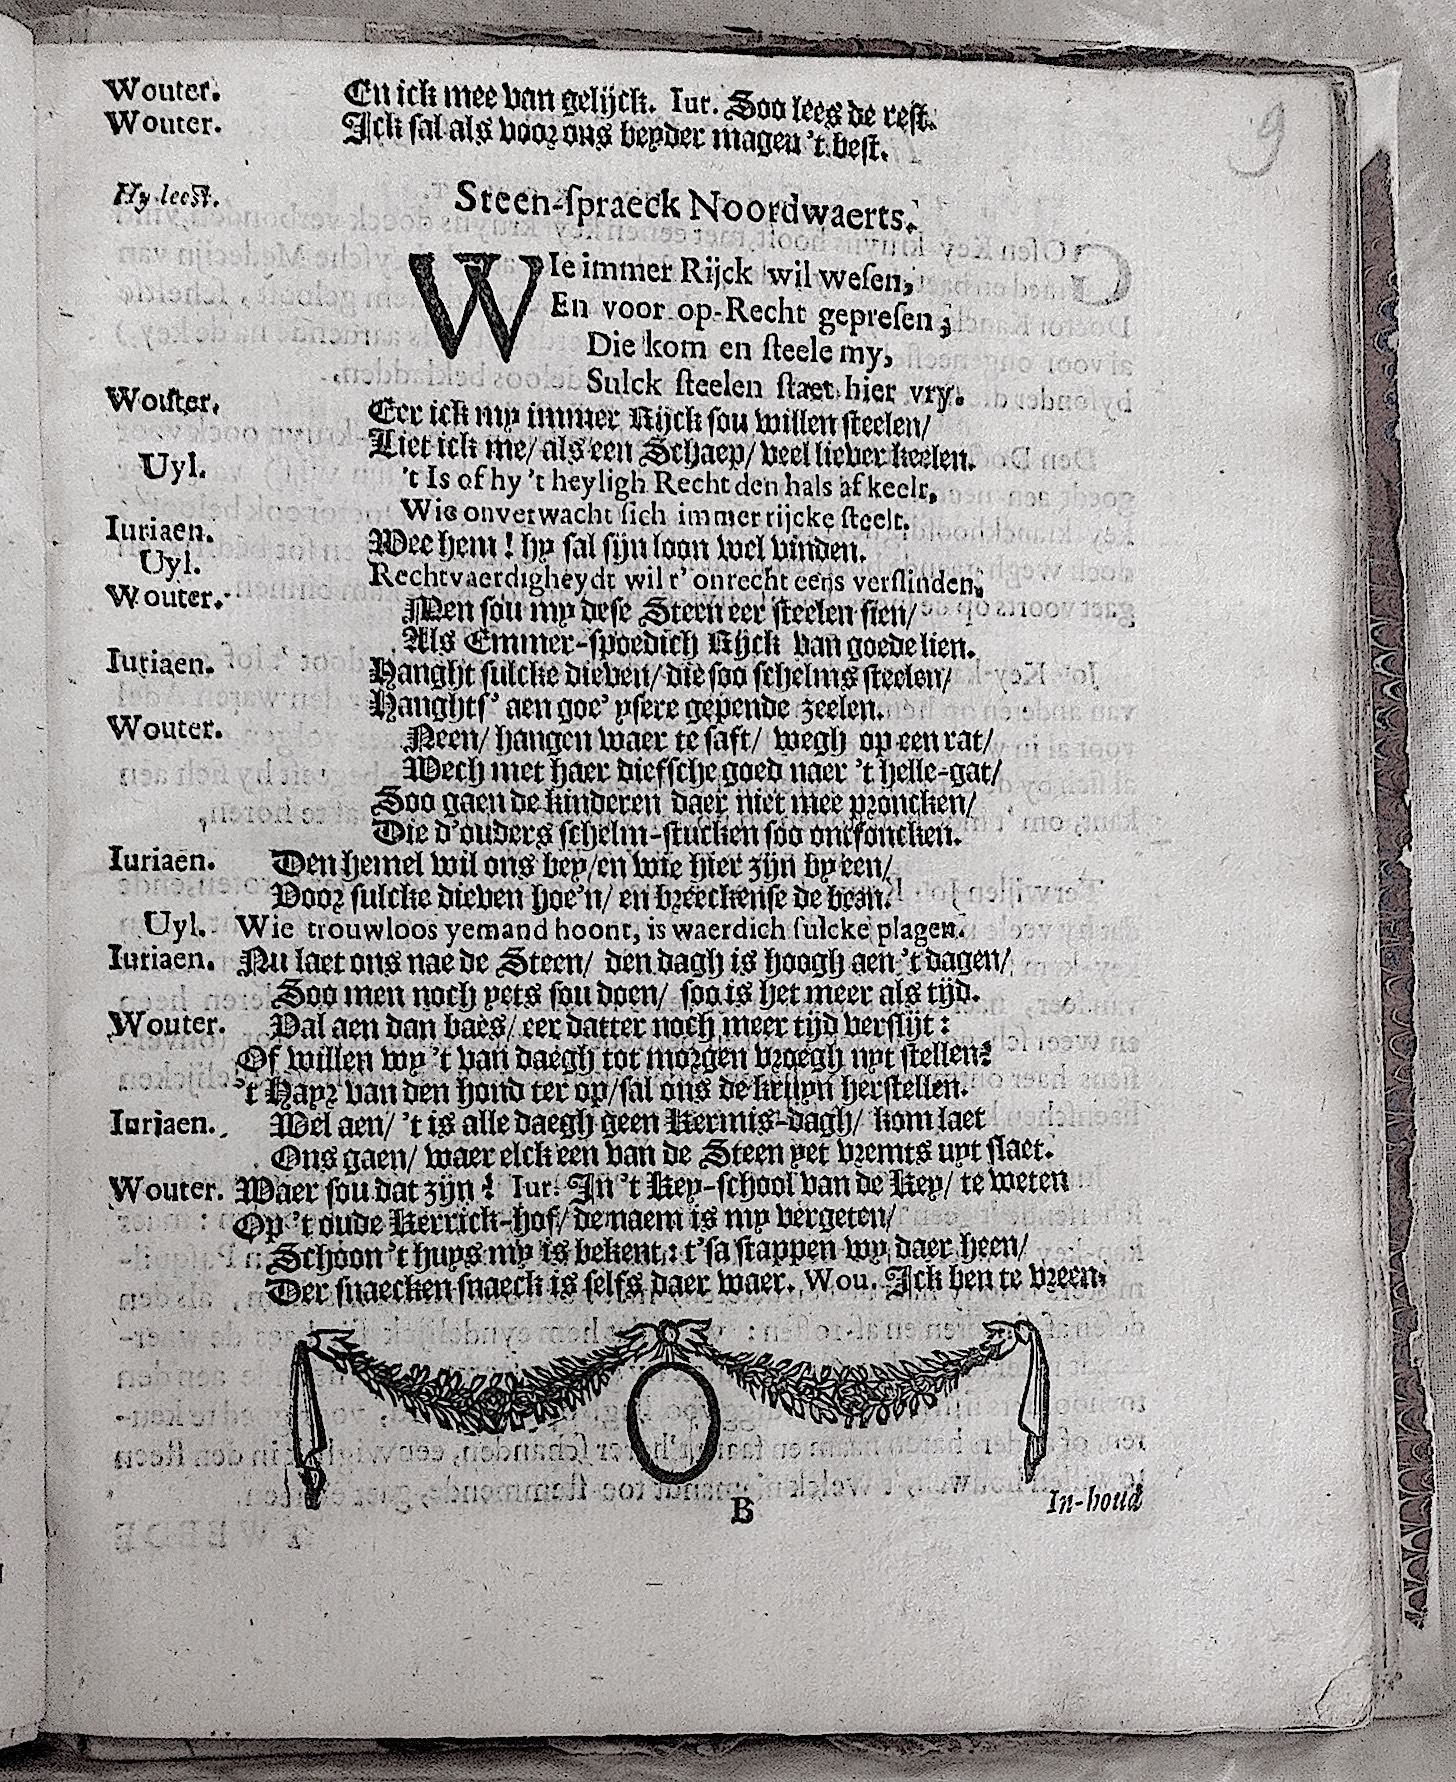 9
Wouter. En ick mee van gelijck. Iur. Soo lees de rest.
Wouter. Ick sal als voor ons beyder magen 't best.
Hy leest. Steen-spraeck Noordwaerts.
WIe immer Rijck wil wesen,
En voor op-Recht gepresen,
Die kom en steele my,
Sulck steelen staet hier vry.
Wouter. Eer ick my immer Rijck sou willen steelen/
Liet ick me/ als een Schaep/ veel liever keelen.
Uyl. 't Is of hy 't heyligh Recht den hals af keelt,
Wie onverwacht sich immer rijcke steelt.
Iuriaen. Wee hem! hy sal sijn loon wel vinden.
Uyl. Rechtvaerdigheydt wil t' onrecht eens verslinden,
Wouter. Men sou my dese Steen eer steelen sien/
Als Emmer-spoedich Rijck van goede lien.
Iuriaen. Hanght sulcke dieven/ die soo schelms steelen/
Hanghts' aen goe' ysere gepende zeelen.
Wouter. Neen/ hangen waer te saft/ wegh op een rat/
Wech met haer diefsche goed naer 't helle-gat/
Soo gaen de kinderen daer niet mee proncken/
Die d'ouders schelm-stucken soo ontfoncken.
Iuriaen. Den hemel wil ons bey/ en wie hier zijn by een/
Voor sulcke dieven hoe'n/ en breeckense de been.
Uyl. Wie trouwloos yemand hoont, is waerdich sulcke plagen.
Iuriaen. Nu laet ons nae de Steen/ den dagh is hoogh aen 't dagen/
Soo men noch yets sou doen/ soo is het meer als tijd.
Wouter. Val aen dan baes/ eer datter noch meer tijd verslijt:
Of willen wy 't van daegh tot morgen vroegh uyt stellen?
't Hayr van den hond ter op/ sal ons de kruyn herstellen.
Iuriaen. Wel aen/ 't is alle daegh geen Kermis-dagh/ kom laet
Ons gaen/ waer elck een van de Steen yet vremts uyt slaet.
Wouter. Waer sou dat zijn? Iur. In 't Key-school van de Key/ te weten
Op 't oude Kerrick-hof/ de naem is my vergeten/
Schoon 't huys my is bekent: t'sa stappen wy daer heen/
Der snaecken snaeck is selfs daer waer. Wou. Ick ben te vreen.
B
In-houd